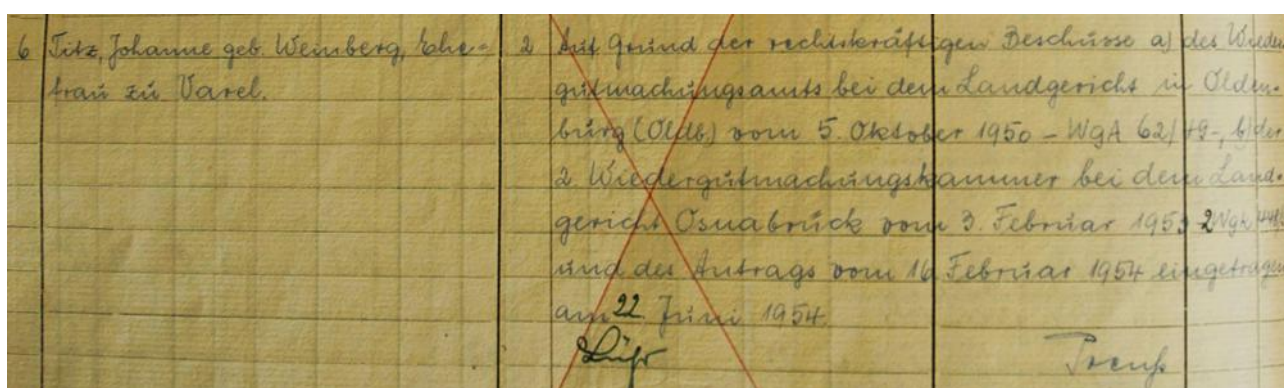 6 Titz, Johanne geb. Weinberg, Ehe- 2 Auf Grund der rechtskräftigen Beschlüsse a) des Wieder
frau zu Varel. gutmachungsamts bei dem Landgericht in Olden-
burg (Oldb) vom 5. Oktober 1950 - WgA 62/49-, b) der
2. Wiedergutmachungskammer bei dem Land-
gericht Osnabrück vom 3. Februar 1953 2 WgK
und des Antrags vom 16. Februar 1954 eingetragen
am 22. Juni 1954.
Lühr Preuß